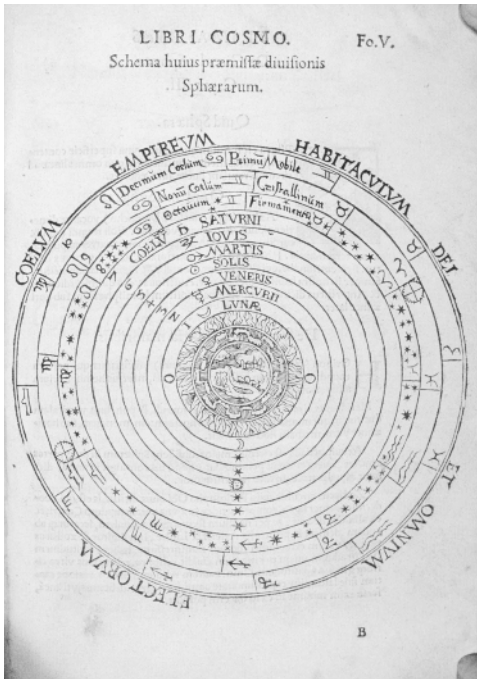 LIBRI COSMO. Fo.V.
Schema huius præmissæ diuiſionis
Sphærarum.
COELVM EMPIREVM HABITACVLVM DEI ET OMNIVM ELECTORVM
Decimum Coelum Primũ Mobile
Nonũ Coelum Cristallinum
Octauum Firmamentũ
COELV
7 SATVRNI
6 IOVIS
5 MARTIS
4 SOLIS
3 VENERIS
2 MERCVRII
1 LVNÆ
B